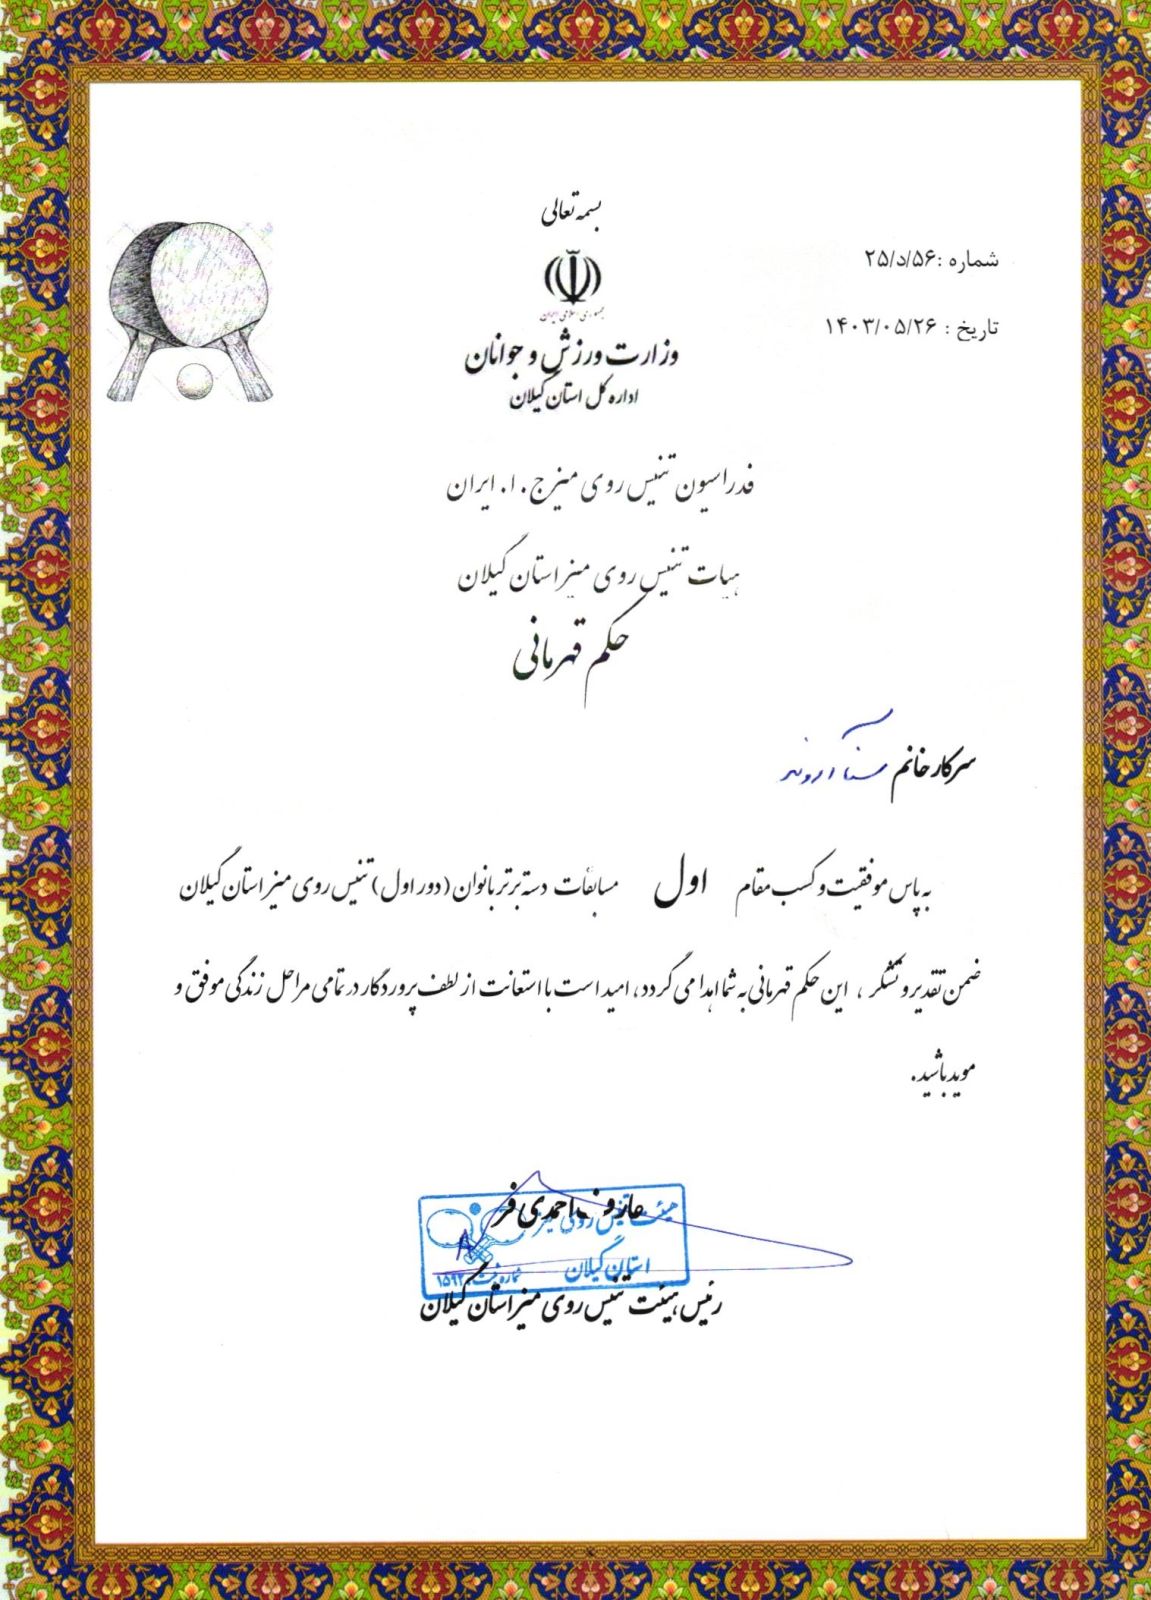 بسمه تعالی
شماره :۲۵/د/۵۶
جمهوری اسلامی ایران
تاریخ : ۱۴۰۳/۰۵/۲۶
وزارت ورزش و جوانان
اداره کل استان گیلان
فدراسیون تنیس روی میز ج . ا . ایران
هیات تنیس روی میز استان گیلان
حکم قهرمانی
سرکار خانم
به پاس موفقیت و کسب مقام اول مسابقات دسته برتر بانوان (دور اول) تنیس روی میز استان گیلان
ضمن تقدیر و تشکر ، این حکم قهرمانی به شما اهدا می گردد، امید است با استعانت از لطف پروردگار در تمامی مراحل زندگی موفق و
موید باشید.
احمدی فر
هیئت تنیس روی میز
استان گیلان
شماره ثبت
رئیس هیئت تنیس روی میز استان گیلان